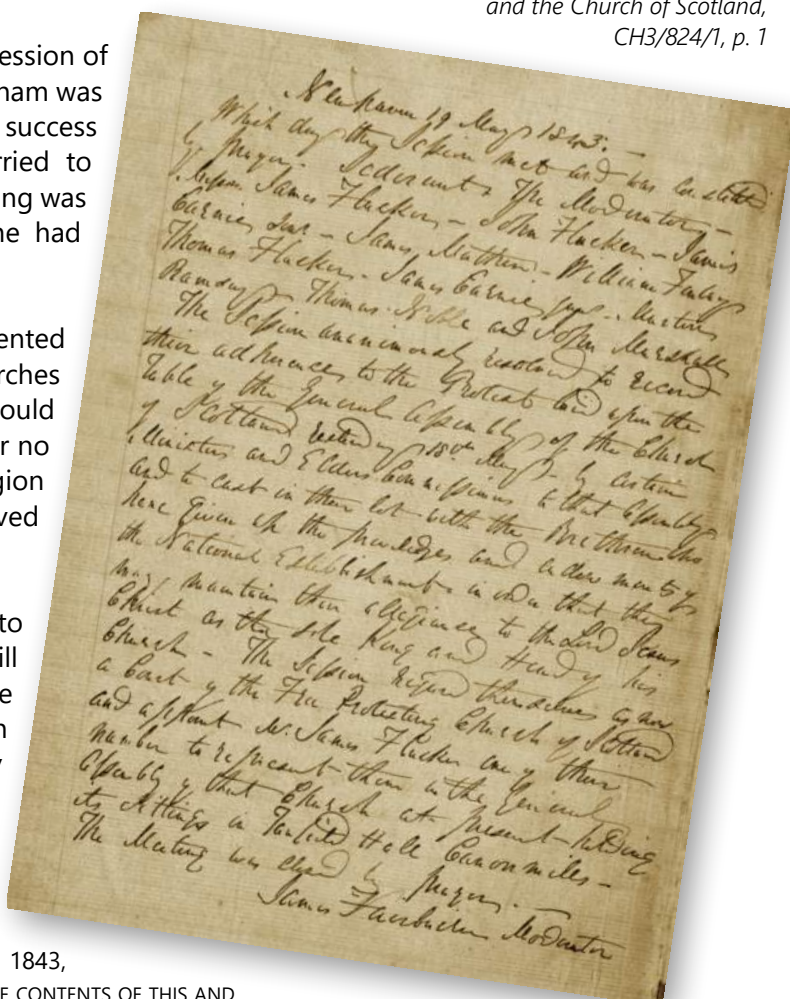 and the Church of Scotland,
CH3/824/1, p. 1
ession of
nam was
success
rried to
ing was
ne had
ented
rches
ould
r no
gion
ved
to
ill
e
n
1843,
E CONTENTS OF THIS AND
Newhaven 19 May 1843. —
Which day the Session met and was constituted
by prayer. Sederunt The Moderator —
James Flucker — John Flucker — James
Carnie Senr — James Matthew — William Finlay
Thomas Flucker — James Carnie junr —
Ramsay — Thomas Noble and John Marshall
The Session unanimously resolved to record
their adherence to the Protest laid upon the
Table of the General Assembly of the Church
of Scotland yesterday 18th May by certain
Ministers and Elders Commissioners to that Assembly
and to cast in their lot with the Brethren who
have given up the privileges and endowments of
the National Establishment in order that they
may maintain their allegiance to the Lord Jesus
Christ as the sole King and Head of his
Church — The Session regard themselves as now
a Court of the Free Protesting Church of Scotland
and appoint Mr. James Flucker one of their
number to represent them in the General
Assembly of that Church at present holding
its sittings in Tanfield Hall Canonmills —
The Meeting was closed by prayer. —
James Fairbairn Moderator